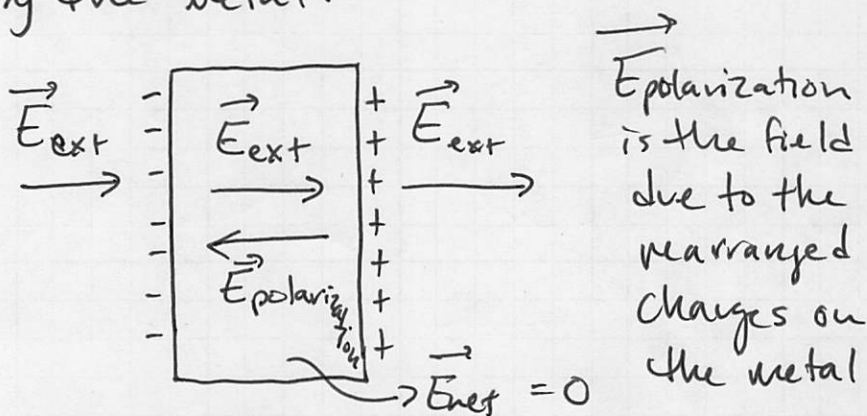 the metal.
E⃗ext
E⃗ext
E⃗ext
E⃗polarization
E⃗net = 0
E⃗polarization
is the field
due to the
rearranged
charges on
the metal